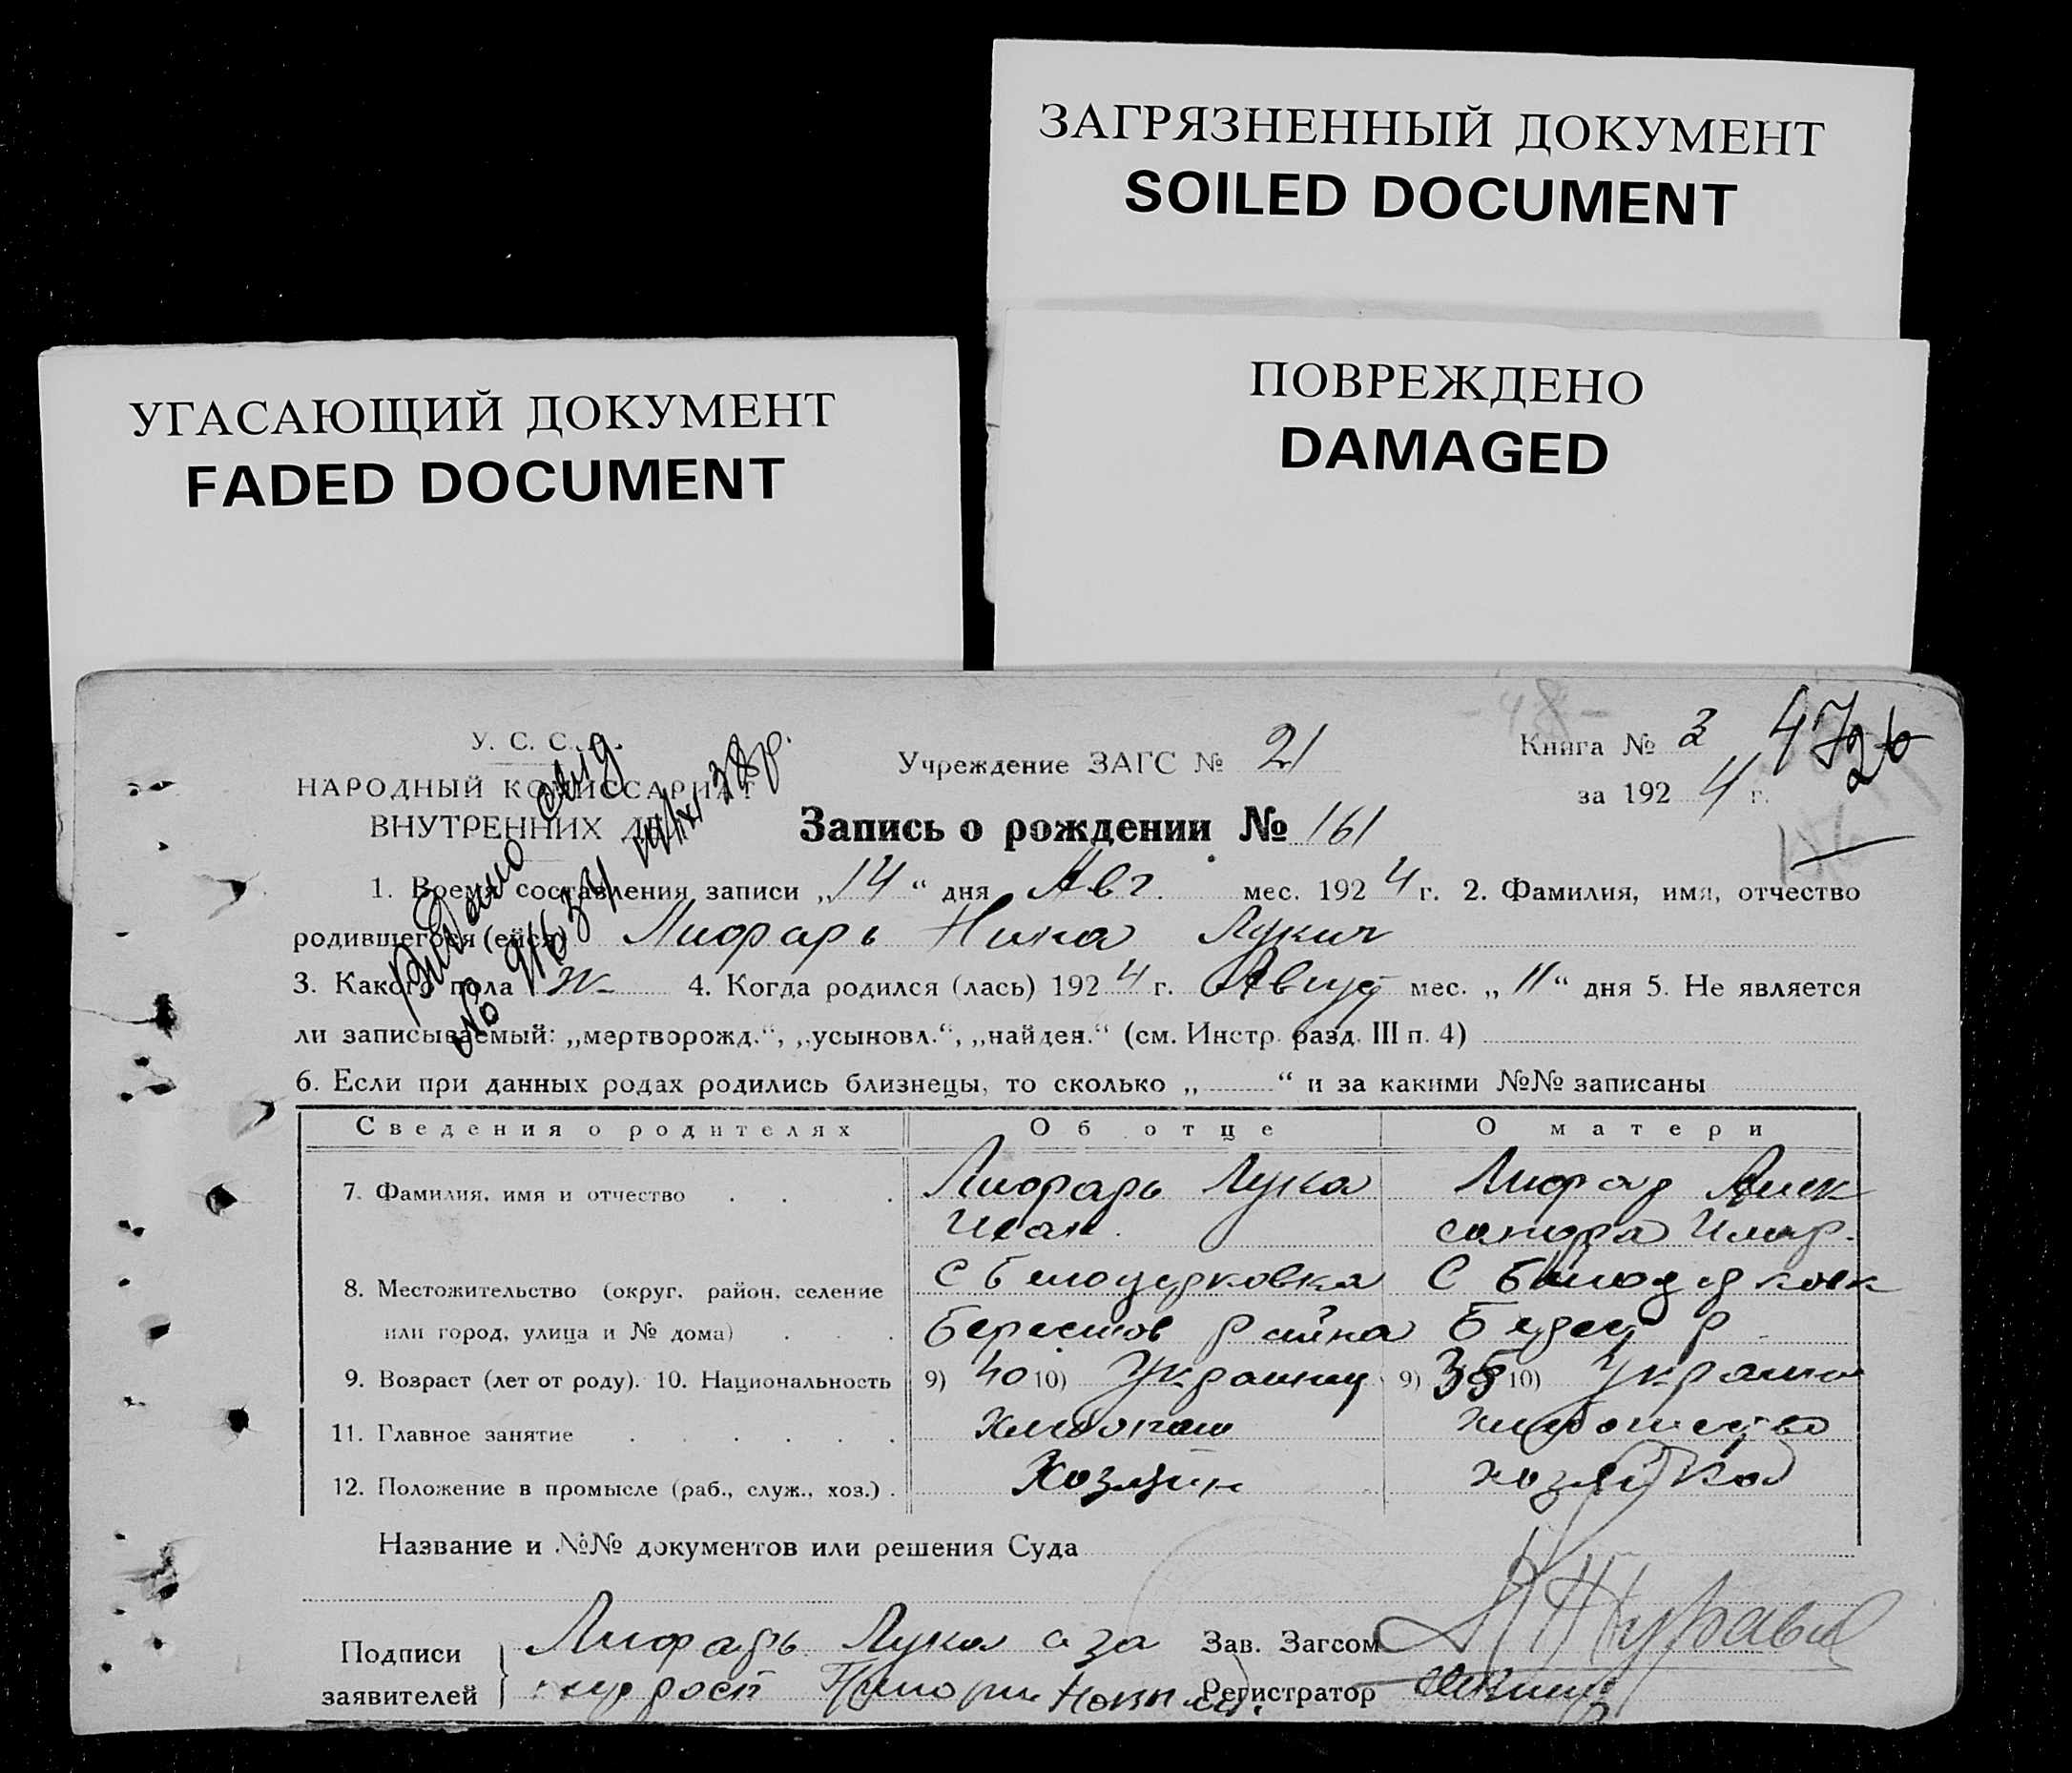 ЗАГРЯЗНЕННЫЙ ДОКУМЕНТ
SOILED DOCUMENT
УГАСАЮЩИЙ ДОКУМЕНТ
FADED DOCUMENT
ПОВРЕЖДЕНО
DAMAGED
-48-
У. С. С.
Учреждение ЗАГС № 21
Книга № 3
472б
НАРОДНЫЙ КОМИССАРИАТ
ВНУТРЕННИХ
за 192 4 г.
Запись о рождении № 161
1. Время составления записи „14“ дня Авг. мес. 192 4 г. 2. Фамилия, имя, отчество
родившегося (ейся) Лифарь Нина Лукич
3. Какого пола ж 4. Когда родился (лась) 192 4 г. Август мес. „11“ дня 5. Не является
ли записываемый: „мертворожд.“, „усыновл.“, „найден.“ (см. Инстр. разд. III п. 4)
6. Если при данных родах родились близнецы, то сколько „ “ и за какими №№ записаны
Сведения о родителях Об отце О матери
7. Фамилия, имя и отчество Лифарь Лука Лифар Алек
Иван. сандра
8. Местожительство (округ, район, селение С Белоцерковка С
или город, улица и № дома) Берестов района
9. Возраст (лет от роду). 10. Национальность 9) 40 10) Украинц 9) 35 10) Украин
11. Главное занятие
12. Положение в промысле (раб., служ., хоз.) Хозяин хозяйка
Название и №№ документов или решения Суда
Подписи Лифарь Лука а за Зав. Загсом
заявителей Регистратор